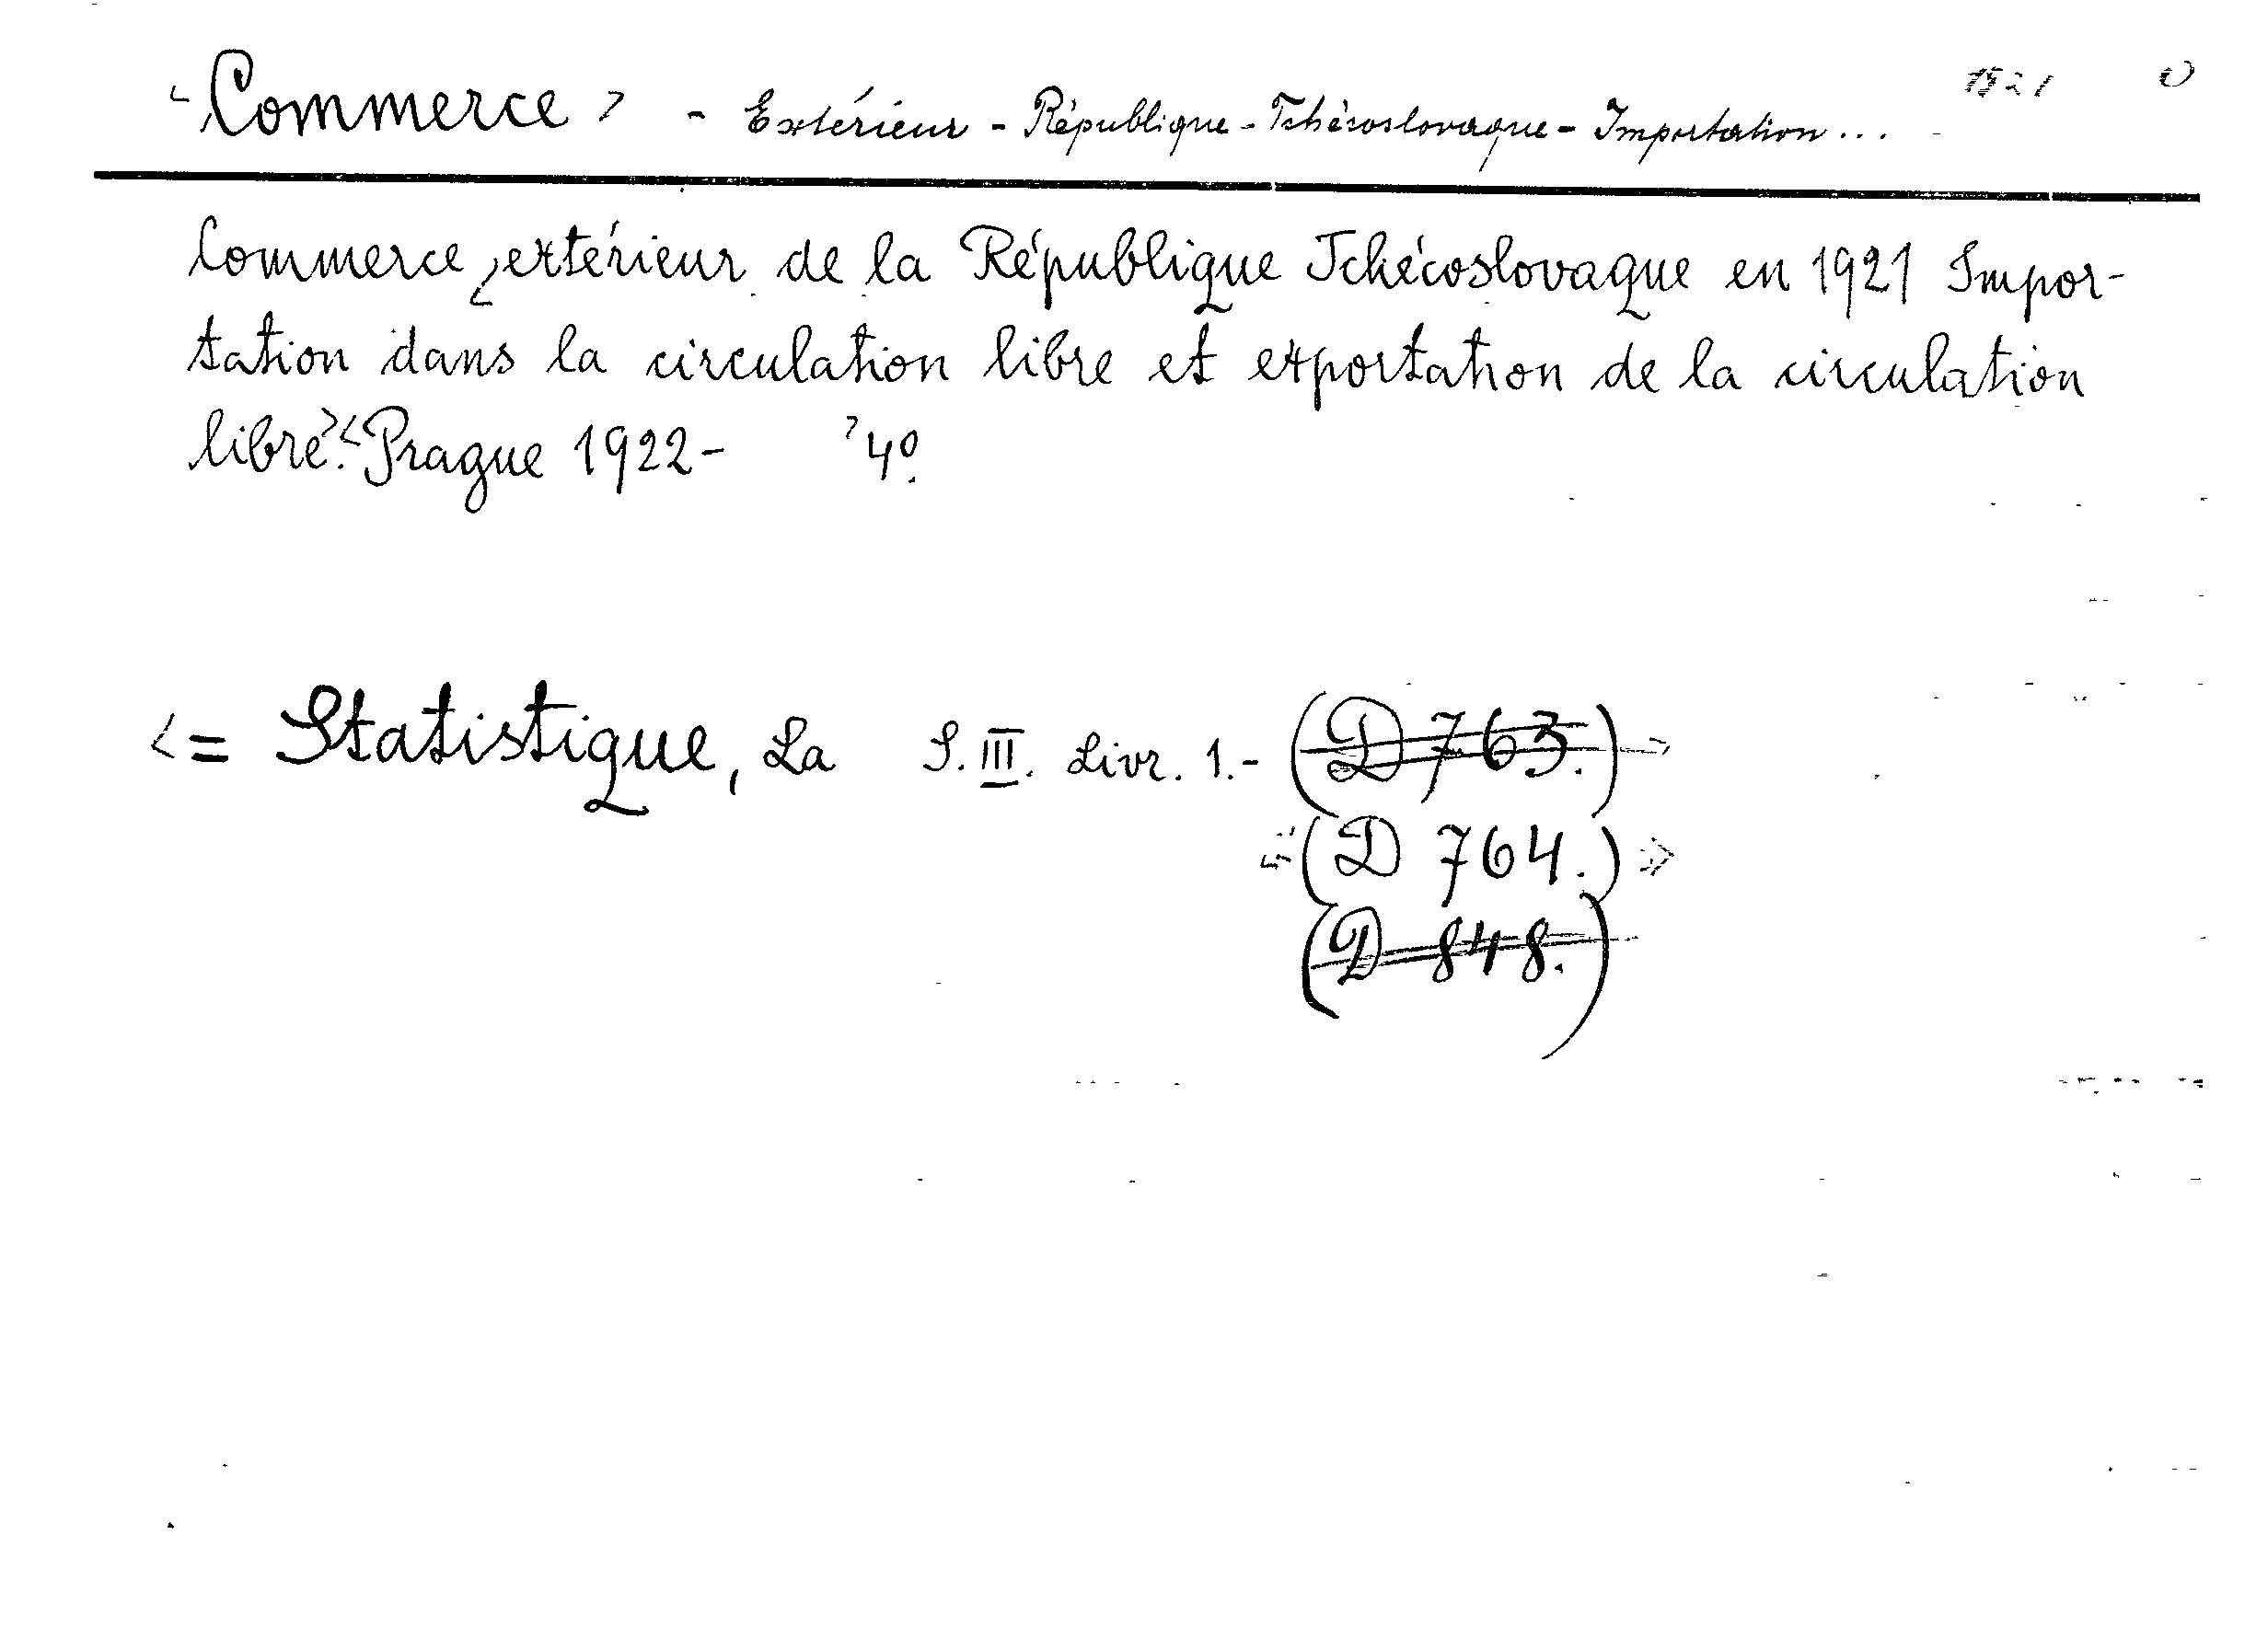 <Commerce> - Extérieur - République - Tchécoslovaque - Importation...
Commerce <extérieur de la République Tchécoslovaque en 1921 Impor-
tation dans la circulation libre et exportation de la circulation
libre.> <Prague 1922- > 4º.
<= Statistique, La S. III. Livr. 1.- (D 763.)>
<(D 764.)>
(D 848.)